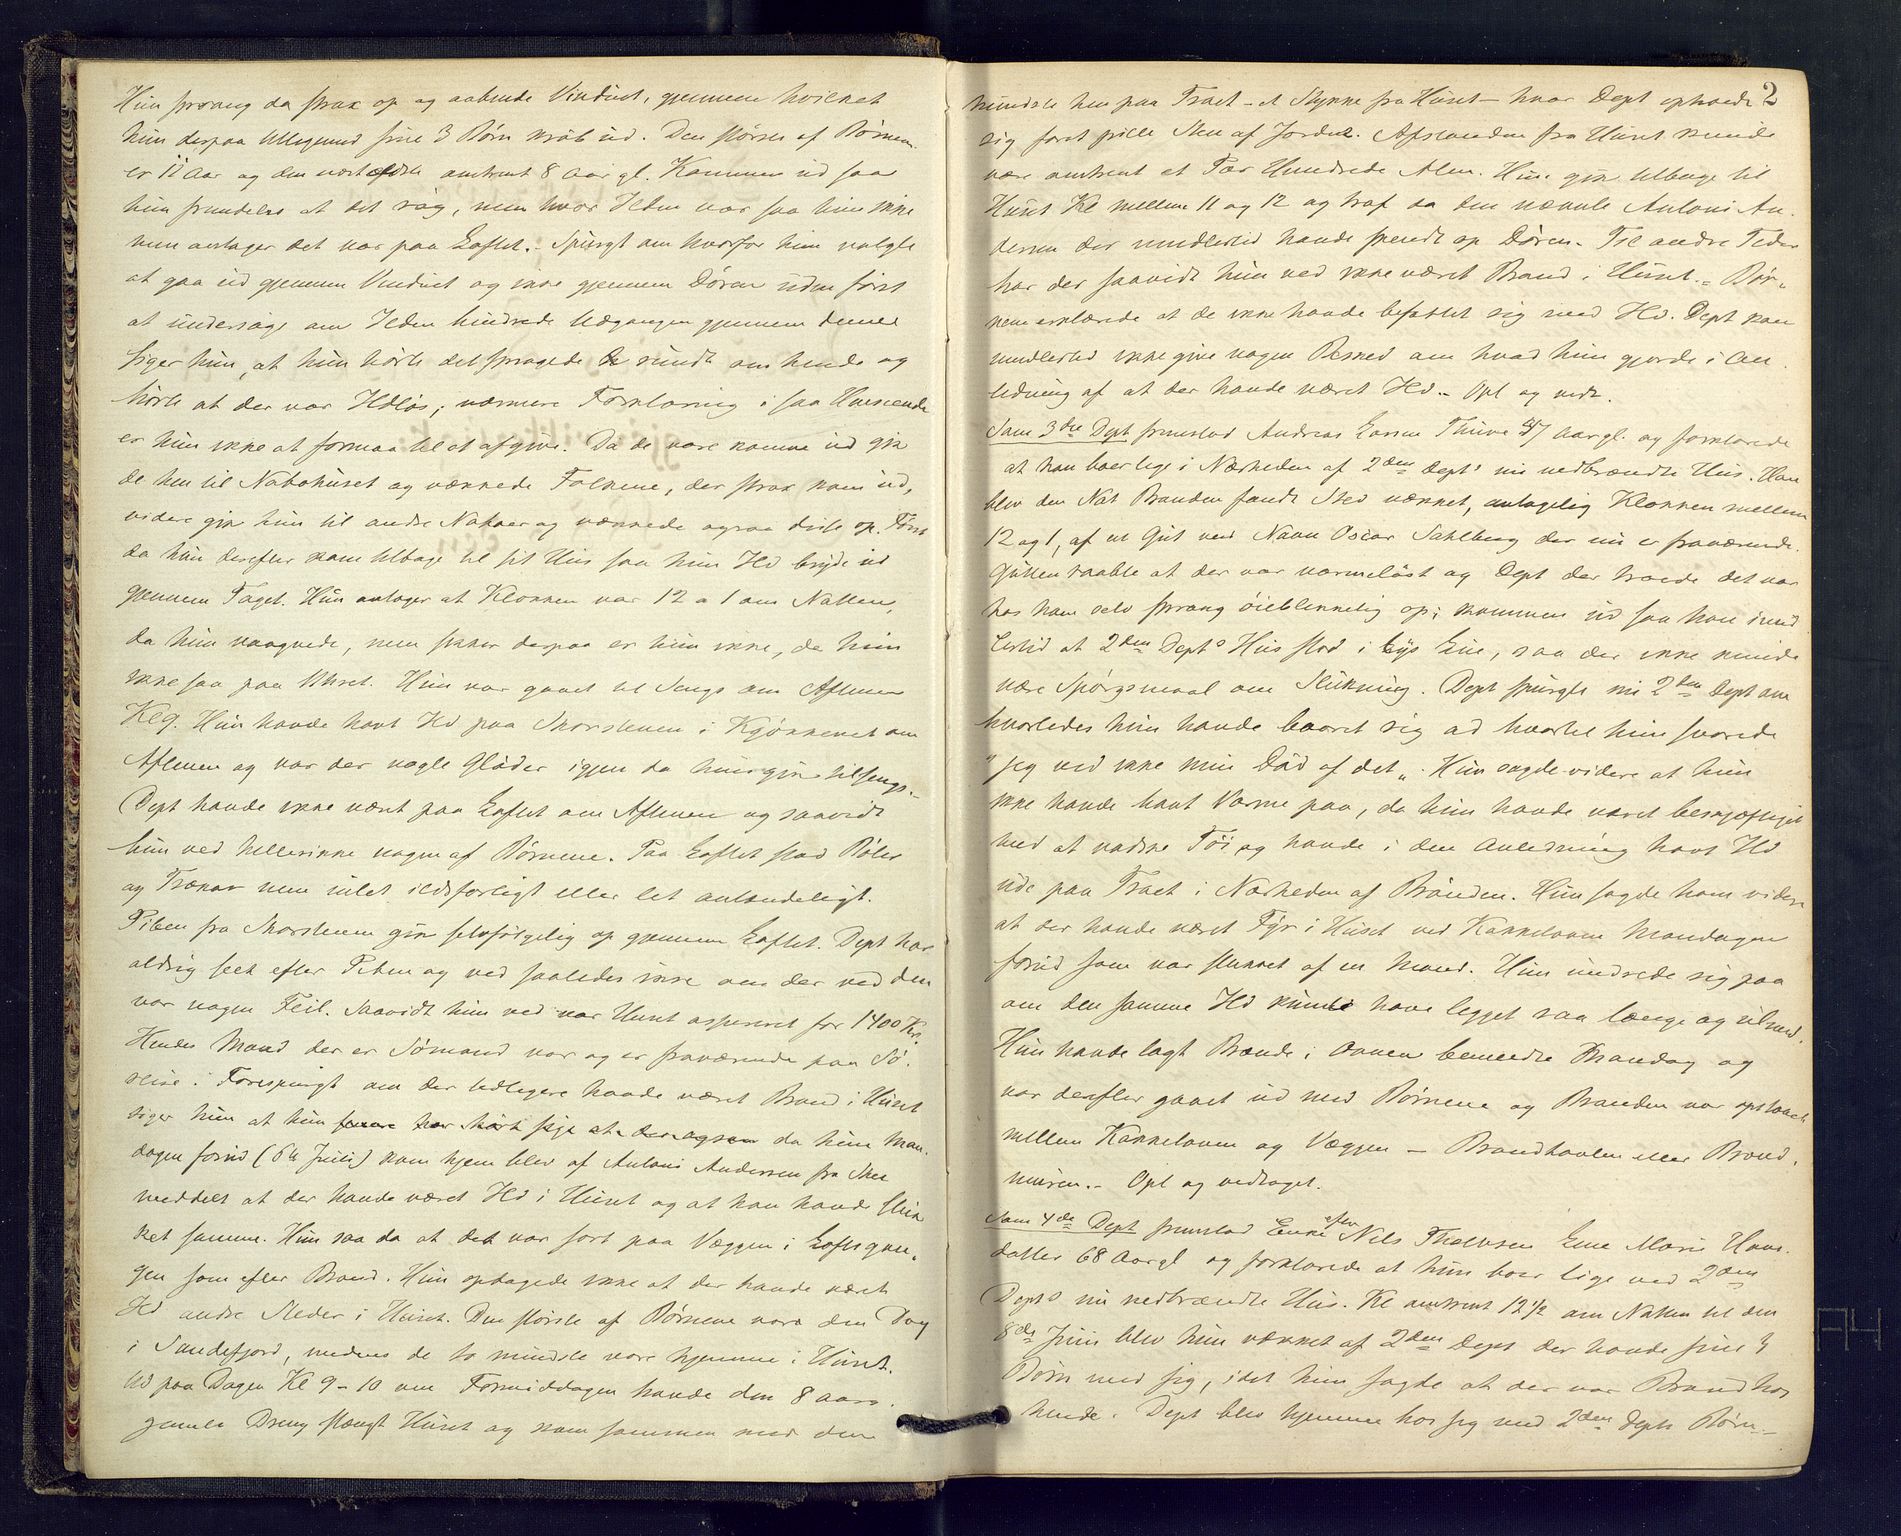 Hun sprang da strax op og aabnede Vinduet, gjennem hvilket
hun derpaa tilligemed sine 3 Børn krøb ud. Den største af Børnene
er 11 Aar og den næstældste omtrent 8 Aar gl. Kommen ud saa
hun fremdeles at det røg, men hvor Ilden var saa hun ikke
men antager det var paa Loftet. Spurgt om hvorfor hun valgte
at gaa ud gjennem Vinduet og ikke gjennem Døren uden først
at undersøge om Ilden hindrede Udgangen gjennem denne
siger hun, at hun hørte det spragede rundt om hende og
hørte at der var Ildløs; nærmere Forklaring i saa Henseende
er hun ikke at formaa til at afgive. Da de vare komne ud gik
de hen til Nabohuset og vækkede Folkene, der strax kom ud,
videre gik hun til andre Naboer og vækkede ogsaa disse op. Først
da hun derefter kom tilbage til sit Hus saa hun Ild bryde ud
gjennem Taget. Hun antager at Klokken var 12 a 1 om Natten,
da hun vaagnede, men sikker derpaa er hun ikke, da hun
ikke saa paa Uhret. Hun var gaaet til Sengs om Aftenen
Kl 9. Hun havde havt Ild paa Skorstenen i Kjøkkenet om
Aftenen og var der nogle Gløder igjen da hun gik tilsengs.
Dept havde ikke været paa Loftet om Aftenen og saavidt
hun ved hellerikke nogen af Børnene. Paa Loftet stod Bøler
og Trækar men intet ildsfarligt eller let antændeligt.
Piben fra Skorstenen gik selvfølgelig op gjennem Loftet. Dept har
aldrig seet efter Piben og ved saaledes ikke om der ved den
var nogen Feil. Saavidt hun ved var Huset assureret for 1400 Kr.
Hendes Mand der er Sømand var og er fraværende paa Sø-
reise. Forespurgt om der tidligere havde været Brand i Huset
siger hun at da hun Man-
dagen forud (6te Juli) kom hjem blev af Antoni Andersen fra
meddelt at der havde været Ild i Huset og at han havde sluk
ket samme. Hun saa da at det var sort paa Væggen i Loftsgan-
gen som efter Brand. Hun opdagede ikke at der havde været
Ild andre Steder i Huset. Den største af Børnene var den Dag
i Sandefjord, medens de to mindste vare hjemme i Huset.
Ud paa Dagen Kl 9-10 om Formiddagen havde den 8 Aars
gamle Dreng stængt Huset og kom sammen med den
2
mindste hen paa Træet - et Stykke fra Huset - hvor Dept opholdt
sig for at pille Sten af Jorden. Afstanden fra Huset kunde
være omtrent et Par Hundrede Alen. Hun gik tilbage til
Huset Kl mellem 11 og 12 og traf da den nævnte Antoni An-
dersen der imidlertid havde sprendt op Døren. Til andre Tider
har der saavidt hun ved ikke været Brand i Huset. - Bør-
nene erklærede at de ikke havde befattet sig med Ild. Dept kan
imidlertid ikke give nogen Besked om hvad hun gjorde i An
ledning af at der havde været Ild. - Opl og vedt.
Som 3die Dept fremstod Andreas Larsen Thuve 37 Aar gl. og forklarede
at han boer lige i Nærheden af 2den Dept's nu nedbrændte Hus. Han
blev den Nat Branden fandt Sted vækket, antagelig Klokken mellem
12 og 1, af en Gut ved Navn Oscar Sahlberg der nu er fraværende.
Gutten raabte at der var varmeløst og Dept der troede det var
hos ham selv sprang øieblikkelig op; kommen ud saa han imid
lertid at 2den Depts Hus stod i lys Lue, saa der ikke kunde
være Spørgsmaal om Slukning. Dept spurgte nu 2den Dept om
hvorledes hun havde baaret sig ad hvortil hun svarede
"jeg ved ikke min Død af det". Hun sagde videre at hun
ikke havde havt Varme paa, da hun havde været beskjæftiget
med at vadske Tøi og havde i den Anledning havt Ild
ude paa Træet i Nærheden af Brønden. Hun sagde ham videre
at der havde været Fyr i Huset ved Kakkelovnen Mandagen
forud som var slukket af en Mand. Hun undrede sig paa
om den samme Ild kunde have ligget saa længe og ulmed.
Hun havde lagt Brænde i Ovnen bemeldte Mandag og
var derefter gaaet ud med Børnene og Branden var opstaaet
mellem Kakkelovnen og Væggen - Brandtavlen eller Brand-
muren. - Opl og vedtaget.
Som 4de Dept fremstod Enke efter Nils Tholvsen Lene Marie Hans-
datter 68 Aar gl og forklarede at hun boer lige ved 2den
Depts nu nedbrændte Hus. Kl omtrent 12½ om Natten til den
8de Juni blev hun vækket af 2den Dept der havde sine 3
Børn med sig, idet hun sagde at der var Brand hos
hende. Dept blev hjemme hos sig med 2den Depts Børn -